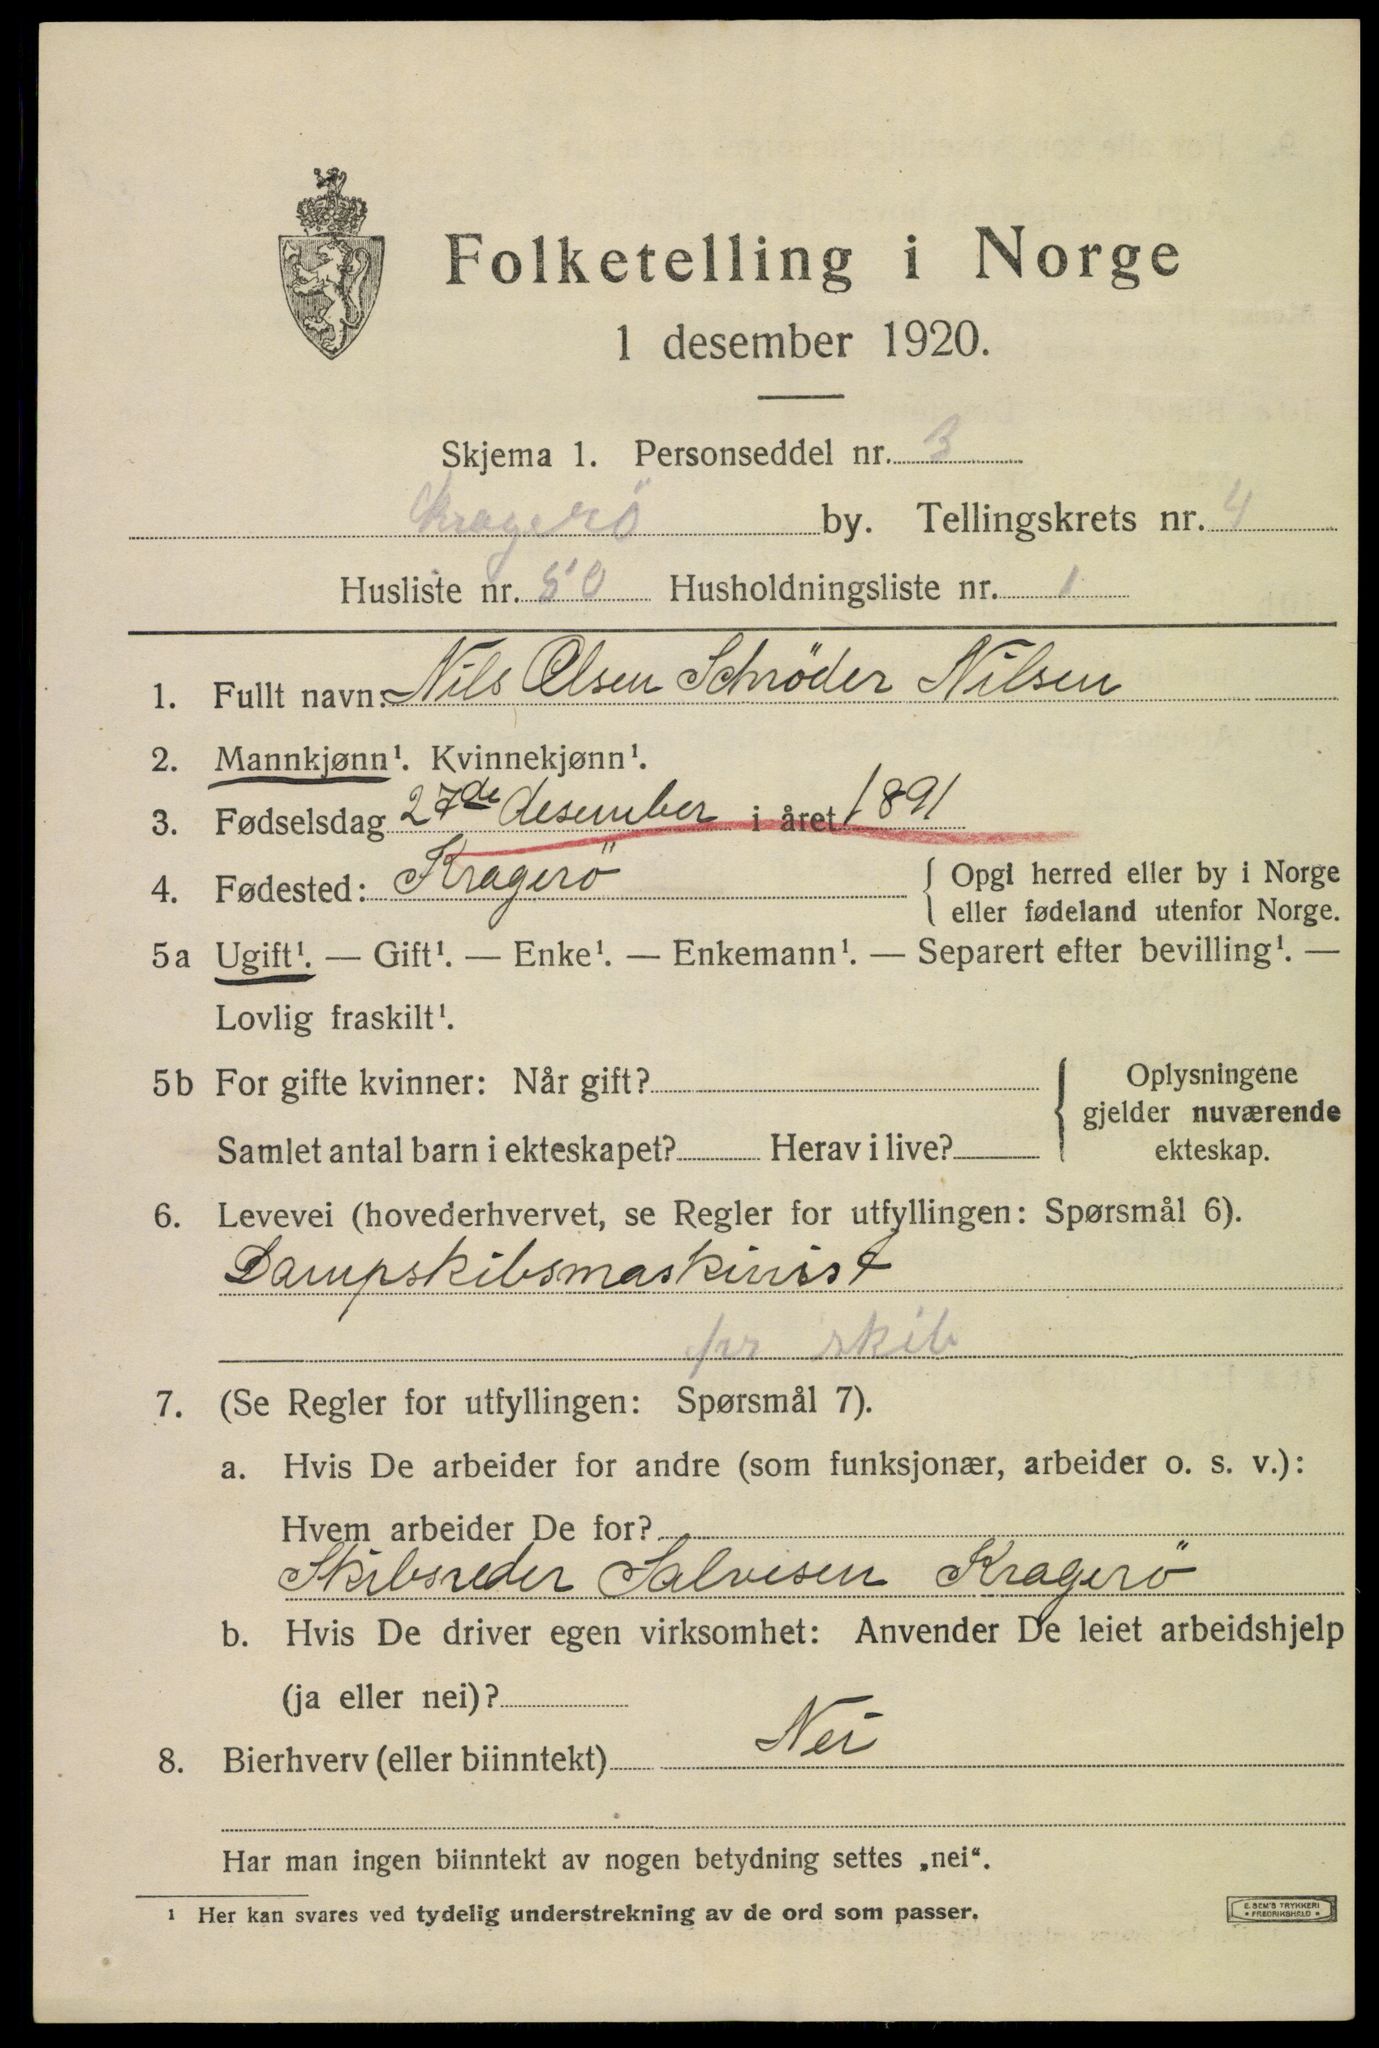 Folketelling i Norge
1 desember 1920.
Skjema 1. Personseddel nr. 3
Kragerö by. Tellingskrets nr. 4
Husliste nr. 50 Husholdningsliste nr. 1
1. Fullt navn: Nils Olsen Schrøder Nilsen
2. Mannkjønn¹. Kvinnekjønn¹.
3. Fødselsdag 27de desember i året 1891
4. Fødested: Kragerö { Opgi herred eller by i Norge
eller fødeland utenfor Norge.
5a Ugift¹. — Gift¹. — Enke¹. — Enkemann¹. — Separert efter bevilling¹. —
Lovlig fraskilt¹.
5b For gifte kvinner: Når gift? { Oplysningene
gjelder nuværende
Samlet antal barn i ekteskapet? Herav i live? ekteskap.
6. Levevei (hovederhvervet, se Regler for utfyllingen: Spørsmål 6).
Dampskibsmaskinist
pr skib
7. (Se Regler for utfyllingen: Spørsmål 7).
a. Hvis De arbeider for andre (som funksjonær, arbeider o. s. v.):
Hvem arbeider De for?
Skibsreder Salvesen Kragerö
b. Hvis De driver egen virksomhet: Anvender De leiet arbeidshjelp
(ja eller nei)?
8. Bierhverv (eller biinntekt) Nei
Har man ingen biinntekt av nogen betydning settes „nei“.
¹ Her kan svares ved tydelig understrekning av de ord som passer.
E. SEM'S TRYKKERI
* FREDRIKSHALD *